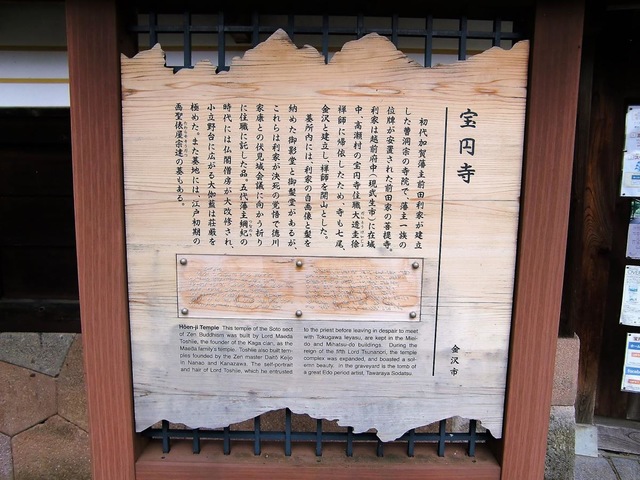 宝円寺
初代加賀藩主前田利家が建立
した曹洞宗の寺院で、藩主一族の
位牌が安置された前田家の菩提寺。
利家は越前府中(現武生市)に在城
中、高瀬村の宝円寺住職大透圭徐
禅師に帰依したため、寺も七尾、
金沢と建立し、禅師を開山とした。
墓所内には、利家の自画像と髪を
納めた御影堂と御髪堂があるが、
これらは利家が決死の覚悟で徳川
家康との伏見城会議に向かう折り
に住職に託した品。五代藩主綱紀の
時代には仏閣僧房が大改修され、
小立野台に広がる大伽藍は荘厳を
極めた。また墓地には、江戸初期の
画聖俵屋宗達の墓もある。
金沢市
Hōen-ji Temple This temple of the Soto sect
of Zen Buddhism was built by Lord Maeda
Toshiie, the founder of the Kaga clan, as the
Maeda family's temple. Toshiie also built tem-
ples founded by the Zen master Daito Keijo
in Nanao and Kanazawa. The self-portrait
and hair of Lord Toshiie, which he entrusted
to the priest before leaving in despair to meet
with Tokugawa Ieyasu, are kept in the Miei-
do and Mihatsu-do buildings. During the
reign of the fifth Lord Tsunanori, the temple
complex was expanded, and boasted a sol-
emn beauty. In the graveyard is the tomb of
a great Edo period artist, Tawaraya Sodatsu.